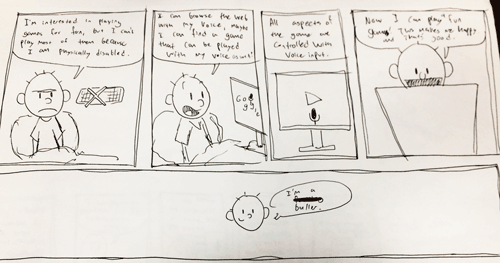 I'm interested in playing
games for fun, but I can't
play most of them because
I am physically disabled.
I can browse the web
with my voice, maybe
I can find a game
that can be played
with my voice
All aspects
of the game are
controlled with
voice input.
Now I can play fun
games! This makes me happy
and that's good.
Goo
I'm a
baller.